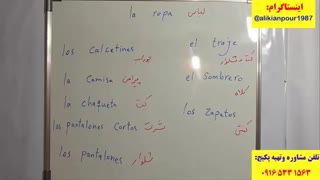 la ropa لباس
los calcetines جوراب
la camisa پیراهن
la chaqueta کت
los pantalones cortos شرت
los pantalones شلوار
el traje کت و شلوار
el sombrero کلاه
los zapatos کفش
اینستاگرام:
@alikianpour1987
تلفن مشاوره وتهیه پکیج:
۰۹۱۶ ۵۳۳ ۱۵۶۳